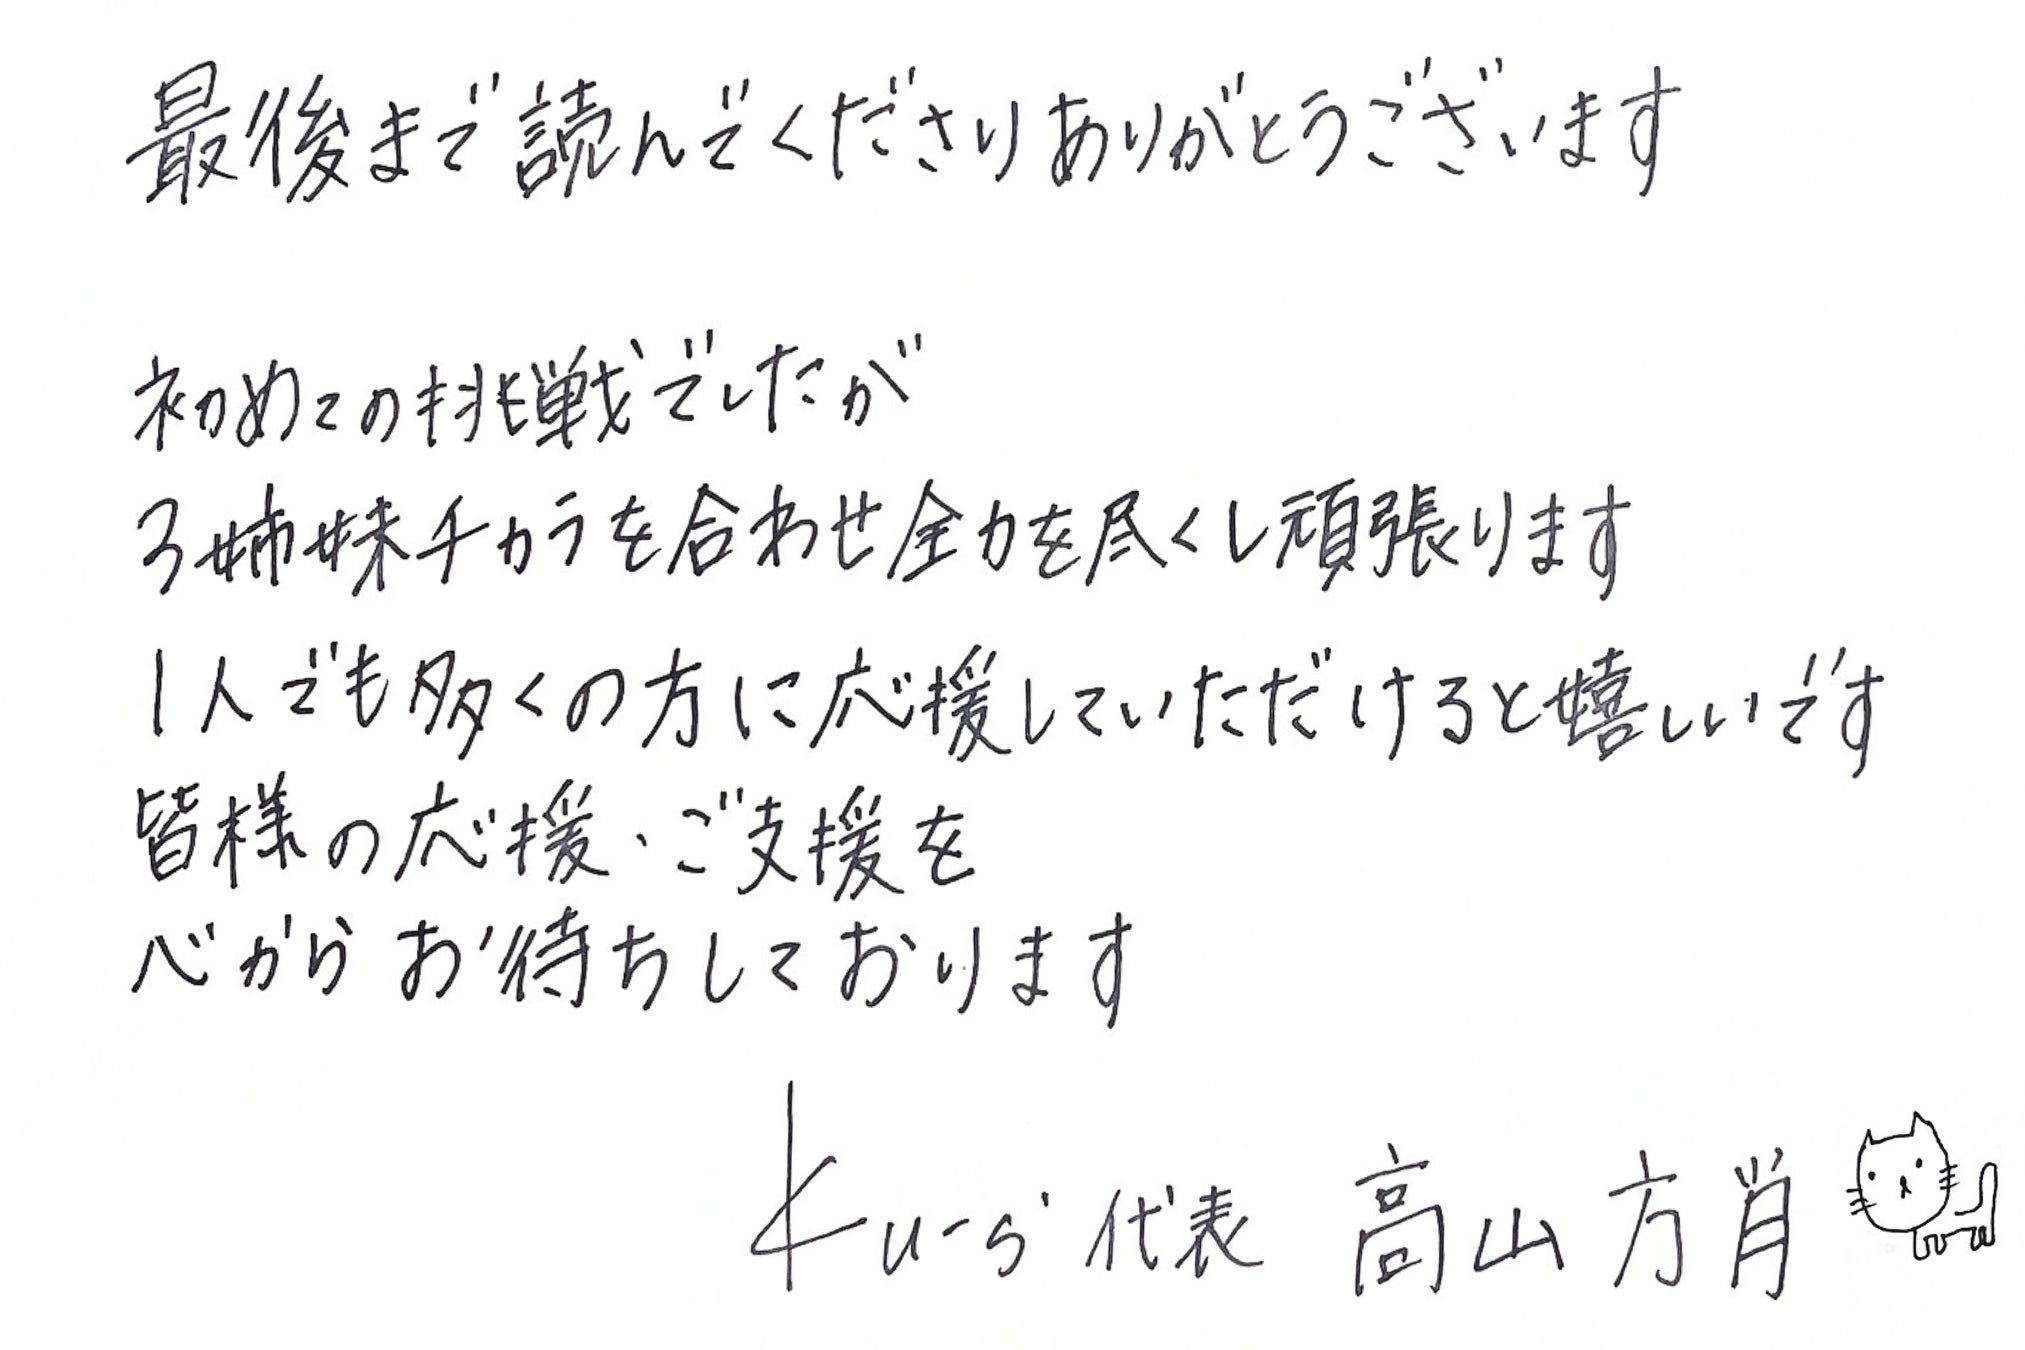 最後まで読んでくださりありがとうございます
初めての挑戦でしたが
3姉妹チカラを合わせ全力を尽くし頑張ります
1人でも多くの方に応援していただけると嬉しいです
皆様の応援・ご支援を
心からお待ちしております
代表 高山 方肖